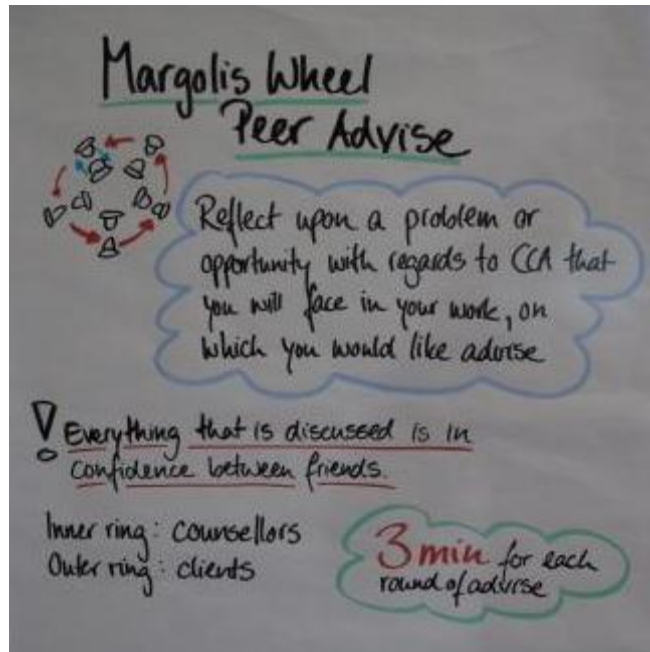 Margolis Wheel
Peer Advise
Reflect upon a problem or
opportunity with regards to CCA that
you will face in your work, on
which you would like advise
! Everything that is discussed is in
confidence between friends.
Inner ring: counsellors
Outer ring: clients
3 min for each
round of advise